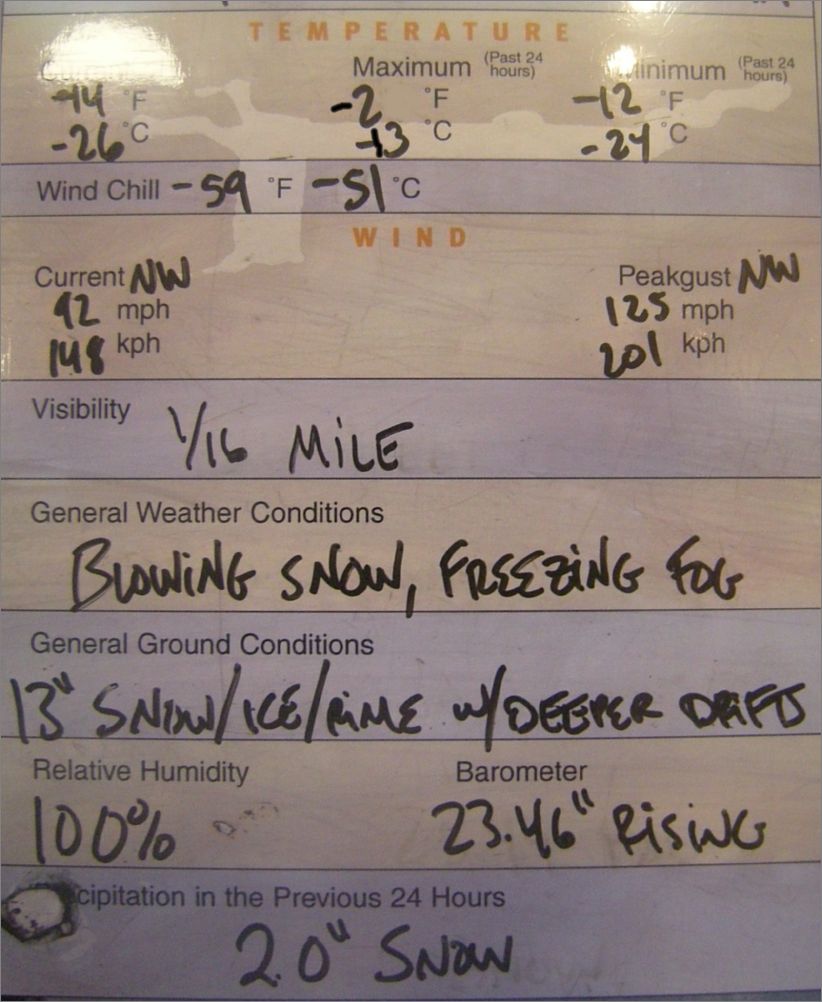 TEMPERATURE
Maximum (Past 24 hours) Minimum (Past 24 hours)
-14 °F -2 °F -12 °F
-26 °C -13 °C -24 °C
Wind Chill -59 °F -51 °C
WIND
Current NW Peakgust NW
92 mph 125 mph
148 kph 201 kph
Visibility
1/16 MILE
General Weather Conditions
BLOWING SNOW, FREEZING FOG
General Ground Conditions
13" SNOW/ICE/RIME W/DEEPER DRIFTS
Relative Humidity Barometer
100% 23.46" RISING
cipitation in the Previous 24 Hours
2.0" SNOW